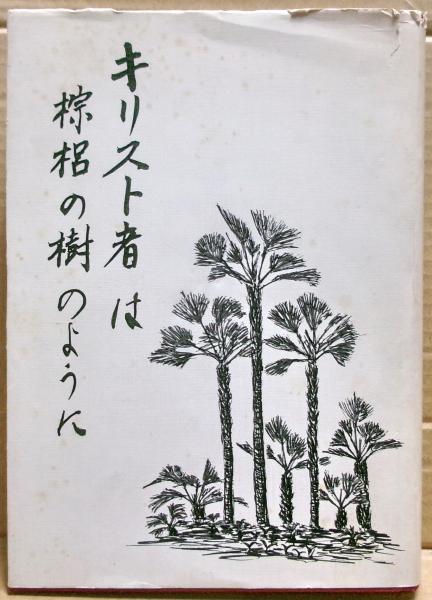 キリスト者は
棕梠の樹のように